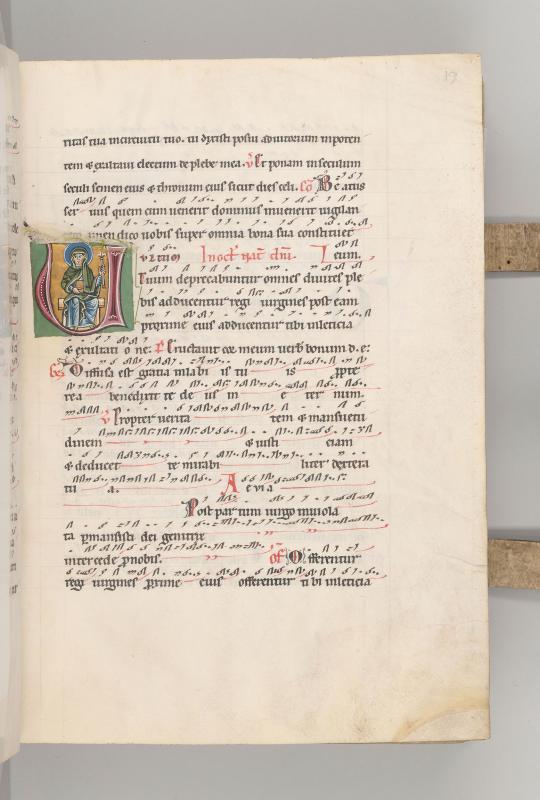 19
ritas tua incircuitu tuo. tu dixisti posui adiutorium inpoten
tem & exaltaui electum de plebe mea. Et ponam inseculum
seculi semen eius & thronum eius sicut dies celi. Co Beatus
ser uus quem cum uenerit dominus inuenerit uigilan
amen dico uobis super omnia bona sua constituet
eum.
Vultum deprecabuntur omnes diuites ple
bis adducentur regi uirgines post eam
proxime eius adducentur tibi inleticia
& exultati o ne: Eructauit cor meum uerbum bonum d. e:
Diffusa est gratia in labi is tu is propte
rea benedixit te de us in e ter num.
Propter uerita tem & mansuetu
dinem & iusti ciam
& deducet te mirabi liter dextera
tu a. A e uia
Post partum uirgo inuiola
ta permansisti dei genitrix
intercede pro nobis. Of Offerentur
regi uirgines proxime eius offerentur ti bi inleticia